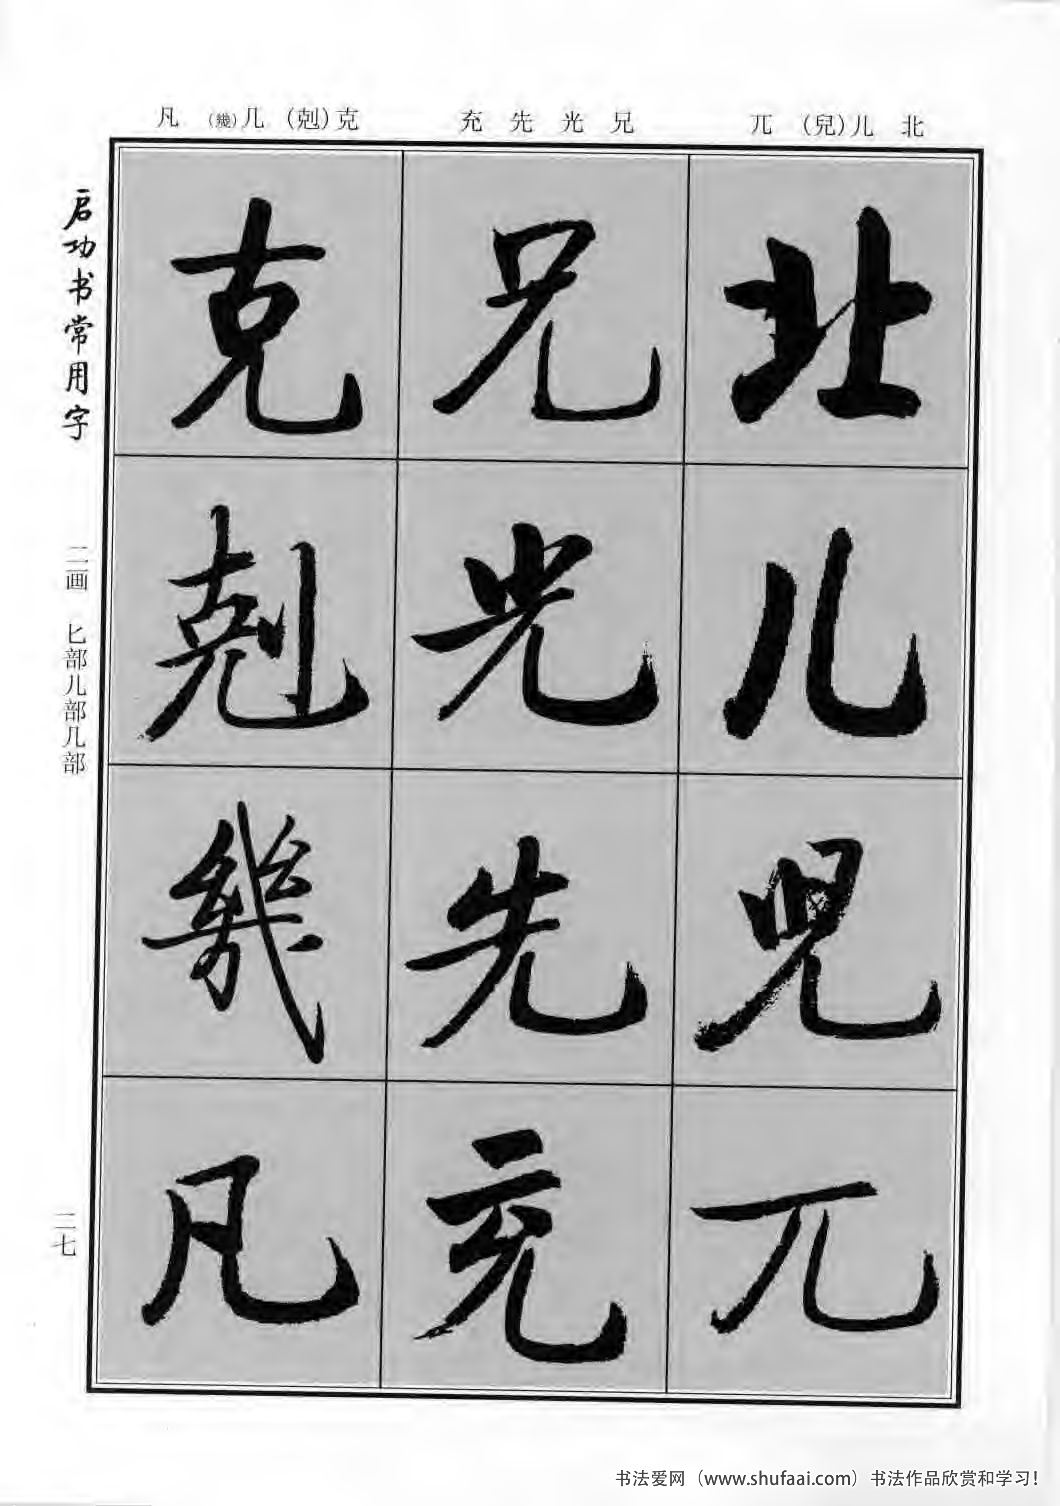 北 儿(兒) 兀
兄 光 先 充
克(剋) 几(幾) 凡
启功书常用字
二画 匕部儿部几部
二七
北
儿
兒
兀
兄
光
先
充
克
剋
幾
凡
书法爱网（www.shufaai.com）书法作品欣赏和学习!